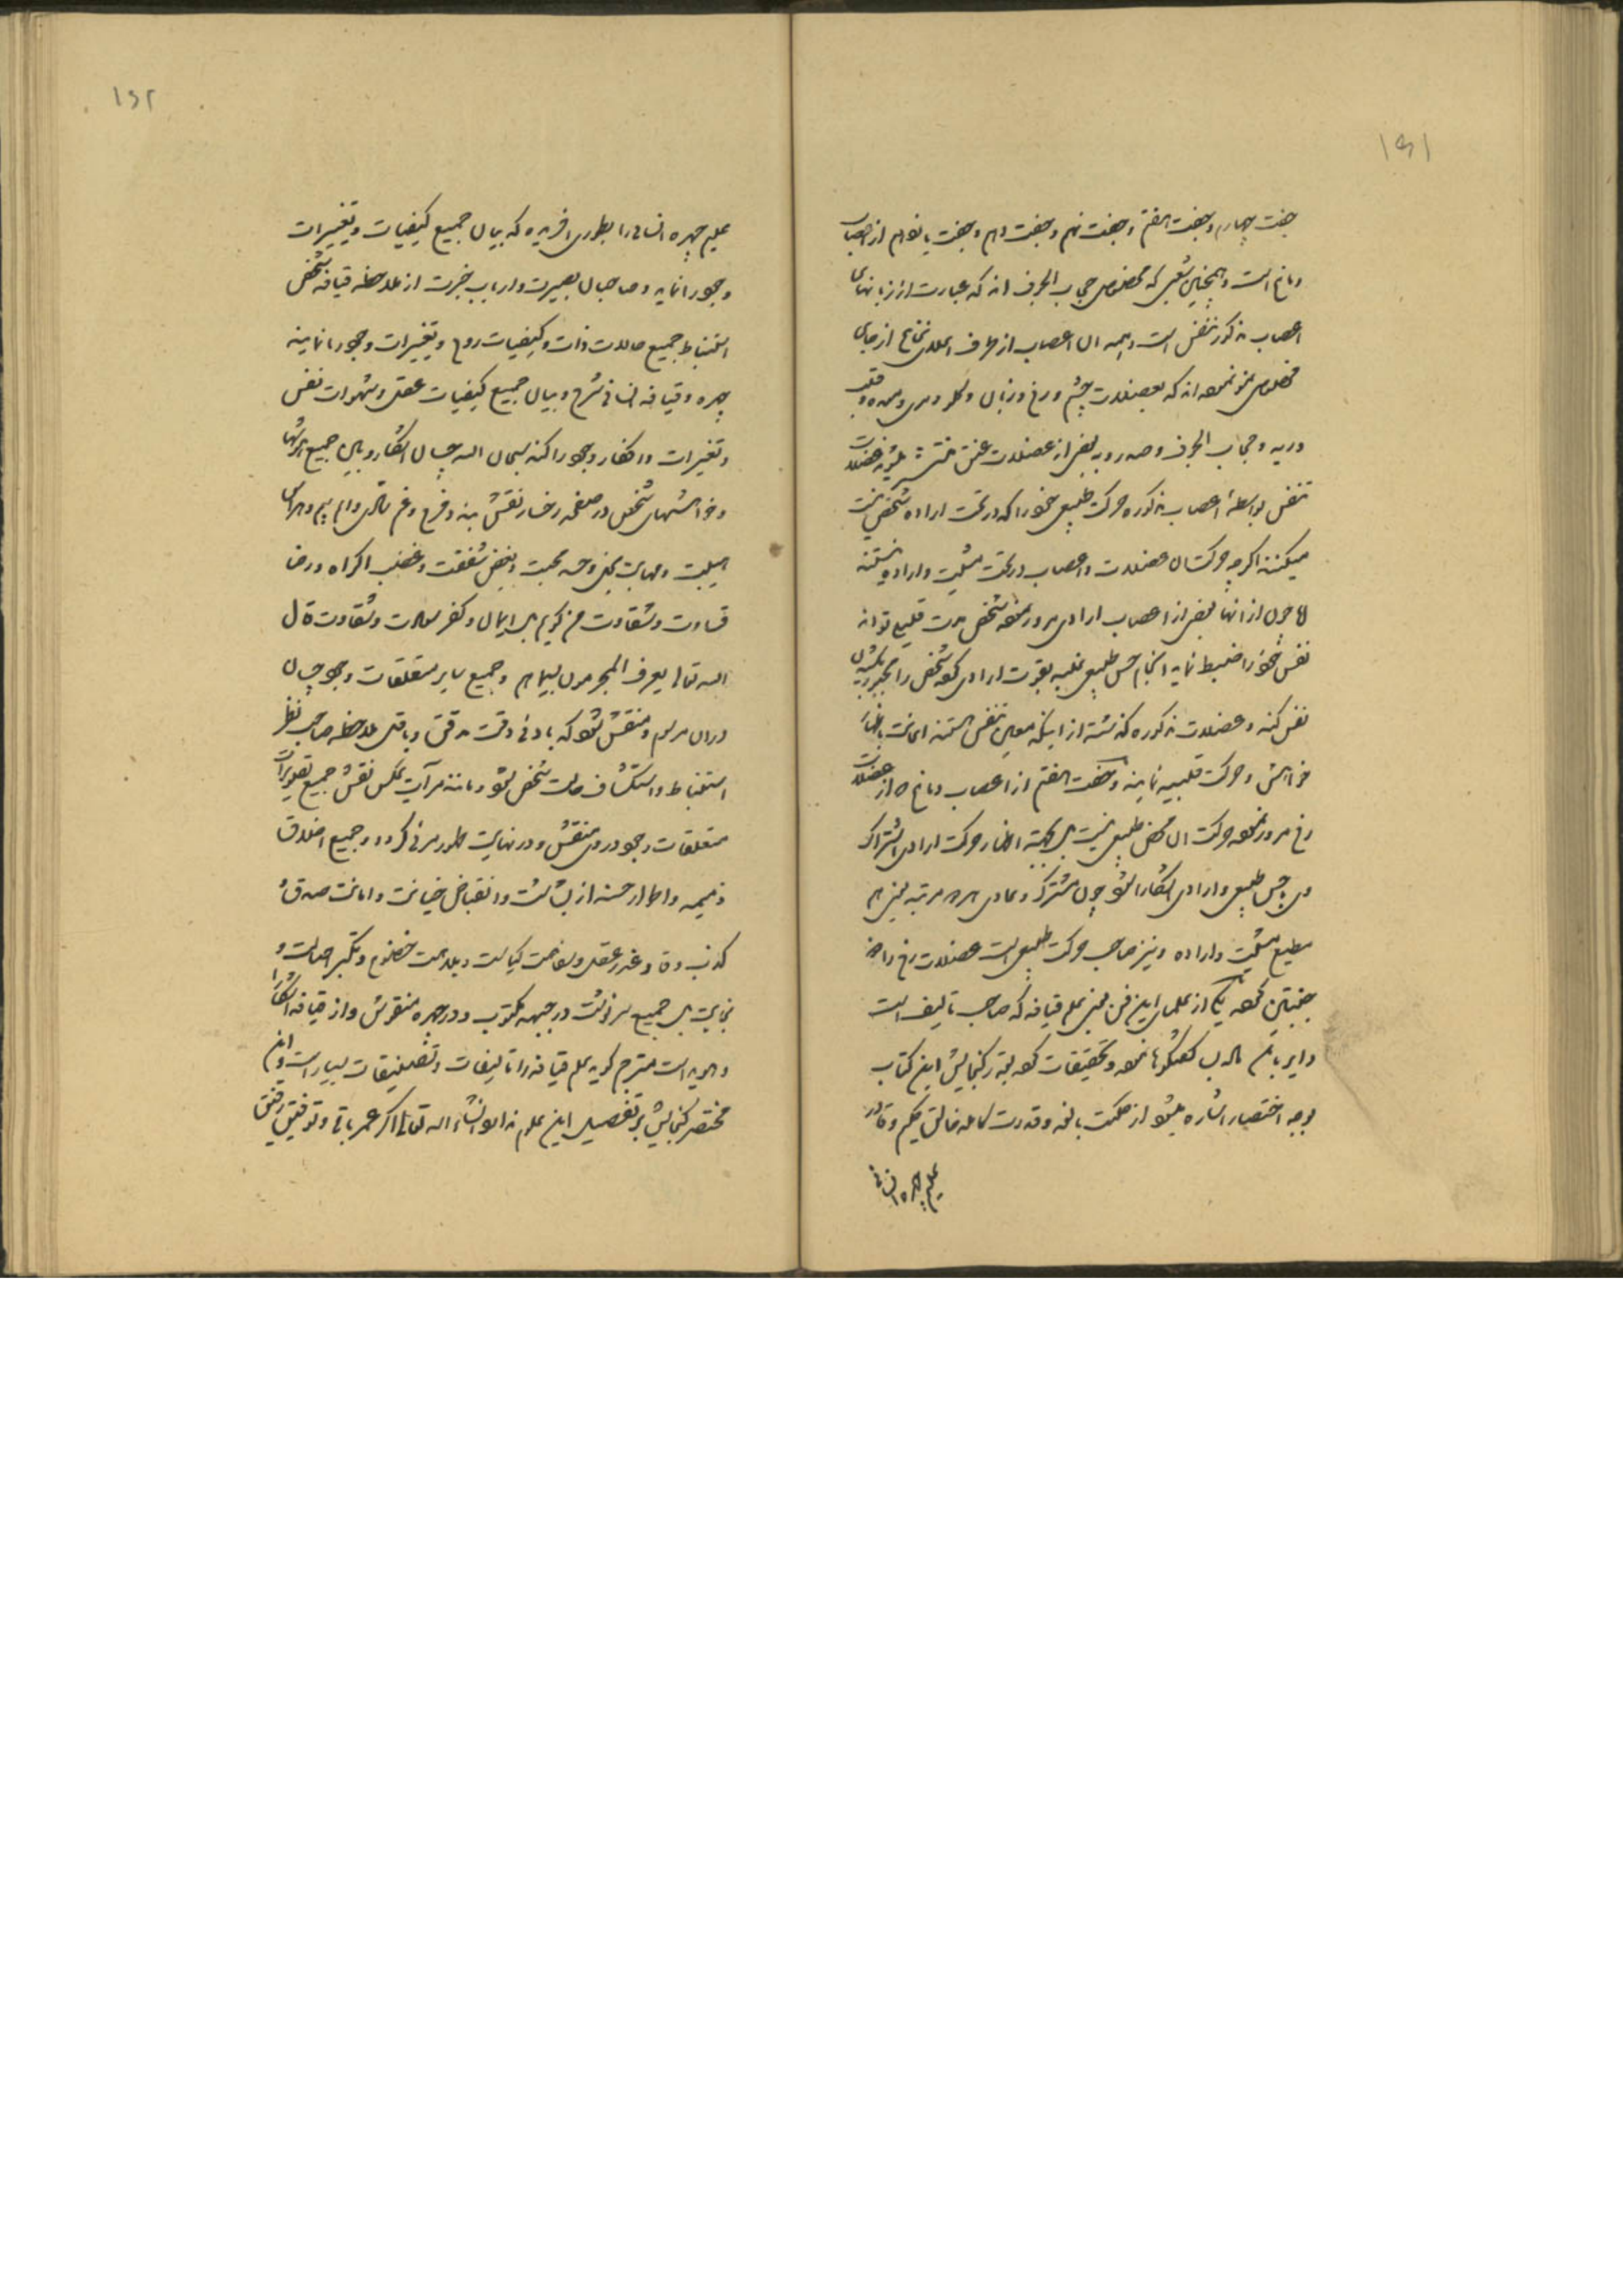 ۱۵۱
جفت چهارم و جفت هفتم و جفت نهم و جفت دهم و جفت یازدهم از اعصاب
دماغ است و همچنین شعبی که مخصوص حجاب الجوف اند که عبارت از زبانهای
اعصاب مذکور تنفس است و همه آن اعصاب از طرف اعلای نخاع از جای
مخصوص نمو نموده اند که بعضلات چشم و رخ و زبان و گلو و مری و معده و قلب
و ریه و حجاب الجوف و صدر و به بعضی از عضلات عنق منتشر میشوند عضلات
تنفس بواسطه اعصاب مذکوره حرکت طبیعی خود را که در تحت اراده شخص نیست
میکنند اگر چه حرکت آن عضلات و اعصاب در تحت مشیت و اراده نیستند
اما چون از آنها بعضی از اعصاب ارادی مرور نموده شخص مدت قلیلی تواند
نفس خود را ضبط نماید انجام حس طبیعی غلبه بقوت ارادی کرده شخص را مجبور بکشیدن
نفس کند و عضلات مذکوره گذشته از اینکه معین تنفس هستند اعانت باظهار
خواهش و حرکت قلبیه نمایند و جفت هفتم از اعصاب دماغ که از عضلات
رخ مرور نموده حرکت آن محض طبیعی نیست بل بجهته اظهار حرکت ارادی اشتراک
وی با حس طبیعی و ارادی آشکارا شود چون مشترک و عادی هر دو مرتبه یعنی هم
مطیع مشیت و اراده و نیز صاحب حرکت طبیعی است عضلات رخ را ض
جنبانیدن کرده یکی از علمای این فن یعنی علم قیافه که صاحب تالیف است
در این باب گفتگوها نموده و تحقیقات کرده بقدر گنجایش این کتاب
بوجه اختصار اشاره میشود از حکمت بالغه و قدرت کامله خالق حکیم و قادر
علیم چهره انسانی
۱۵۲
علیم چهره انسانی را بطوری آفریده که بیان جمیع کیفیات و تغییرات
وجود را نماید و صاحبان بصیرت و ارباب خبرت از ملاحظه قیافه شخص
استنباط جمیع حالات ذات و کیفیات روح و تغییرات وجود را نمایند
چهره و قیافه انسانی شرح و بیان جمیع کیفیات عقل و شهوات نفس
و تغیرات و افکار وجود را کند سبحان الله چسان آشکار و باین جمیع
و خواهشهای شخص در صفحه رخسار نقش بندد فرح و غم تالم و الم بیم و هراس
هیبت و مهابت بخل و حسد محبت و بغض شفقت و غضب اکراه و رضا
قساوت و شقاوت من گویم بل ایمان و کفر سعادت و شقاوت قال
الله تعالی یعرف المجرمون بسیماهم و جمیع سایر متعلقات وجود چسان
در آن مرسوم و منقش شود که بادنی دقت مدققی و باقل ملاحظه صاحب نظر
استنباط و استکشاف حالت شخص شود و مانند مرآت عکس نقش جمیع تصویرات
متعلقات وجود در وی منقش و در نهایت ظهور مرئی گردد و جمیع اخلاق
ذمیمه و اطوار حسنه از بشاشت و انقباض خیانت و امانت صدق و
کذب وفا و غدر عقل و سفاهت کیاست و بلاهت خضوع و تکبر اصالت و
نجابت بل جمیع سرنوشت در جبهه مکتوب و در چهره منقوش و از قیافه آشکارا
و هویداست مترجم گوید علم قیافه را تالیفات و تصنیفات بسیار است و این
مختصر گنجایش بر تفصیل این علوم ندارد انشاء الله تعالی اگر عمر باقی و توفیق رفیق